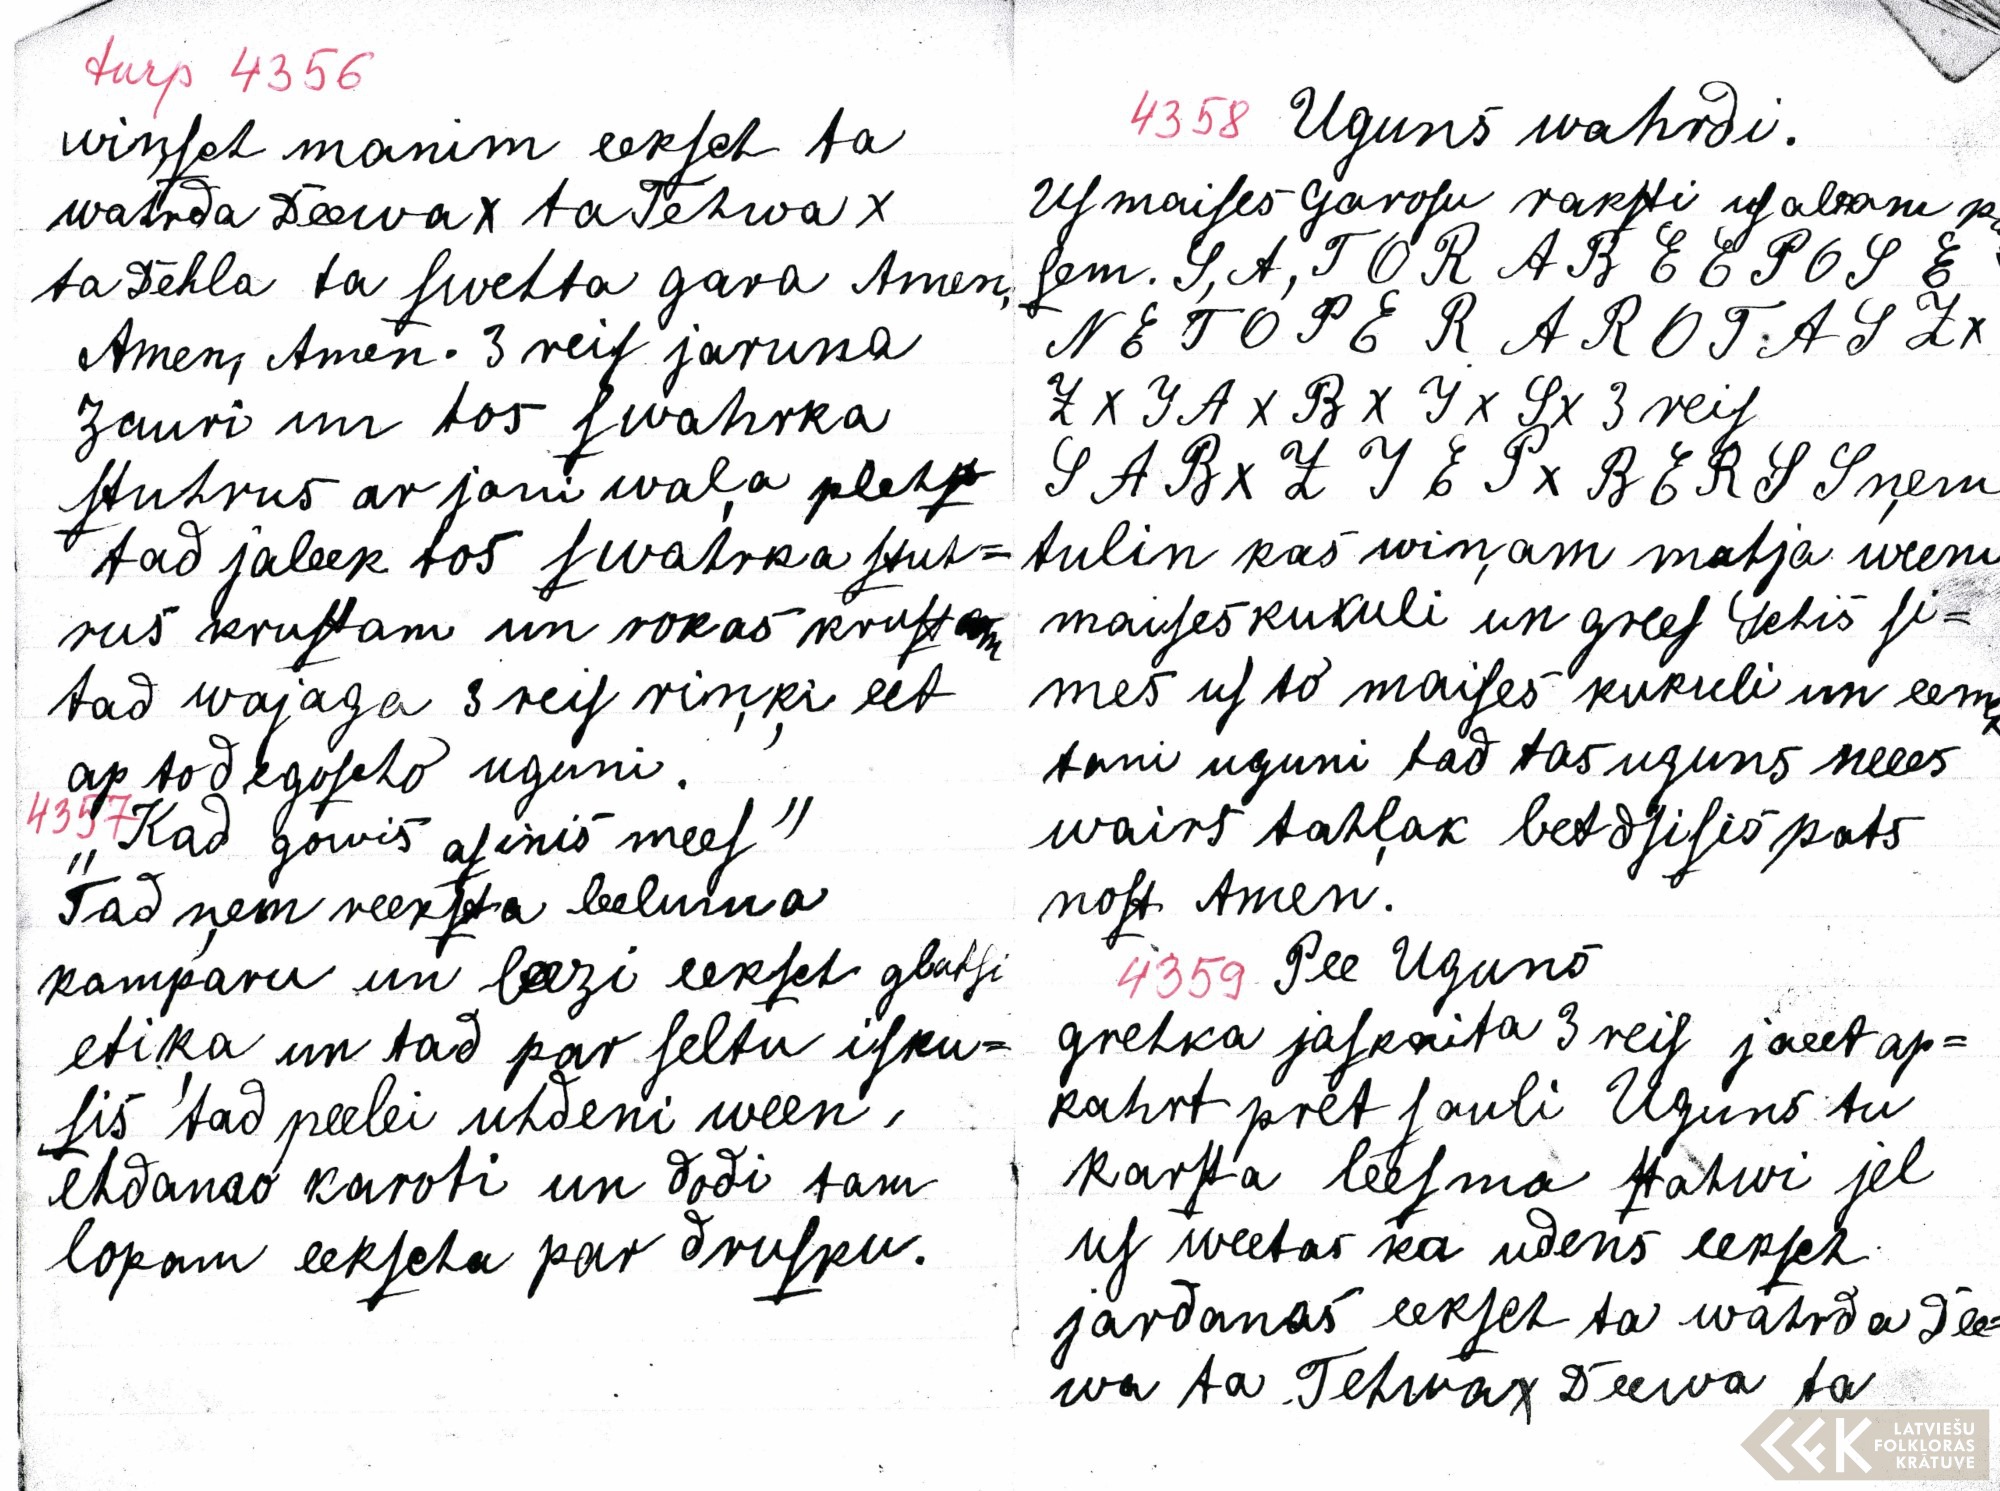 turp 4356
winsch manim eeksch ta
wahrda Deewa x ta Tehwa x
ta Dehla ta swehta gara Amen,
Amen, Amen. 3 reis jaruna
zauri un tos swahrka
stuhrus ar jani waļa
tad jaleek tos swahrka stuh=
rus krustam un rokas krustam
tad wajaga 3 reis riņķi eet
ap to degoscho uguni.
4357
„Kad gowis asinis mees"
Tad ņem reeksta leeluma
kamparu un leezi eeksch glahsi
etiķa un tad par seltu isku=
sis tad peelei uhdeni ween,
ehdamo karoti un dodi tam
lopam eekscha par drusku.
4358 Uguns wahrdi.
Us maises garosu raksti us abam
sem. S, A, T O R A B E E P O S E
N E T O P E R A R O T A S Z x
Z x I A x B x I x S x 3 reis
S A B x Z I E P x B E R S S ņem
tulin kas wiņam mahja weenu
maises kukuli un grees schis si=
mes us to maises kukuli un eemet
tani uguni tad tas uguns nees
wairs tahļak bet dsisis pats
nost Amen.
4359 Pee Uguns
grehka jaskaita 3 reis jaeet ap=
kahrt pret sauli Uguns tu
karsta leesma stahwi jel
us weetas ka udens eeksch
jardanas eeksch ta wahrda Dee=
wa ta Tehwa x Deewa ta
LATVIEŠU
FOLKLORAS
KRĀTUVE